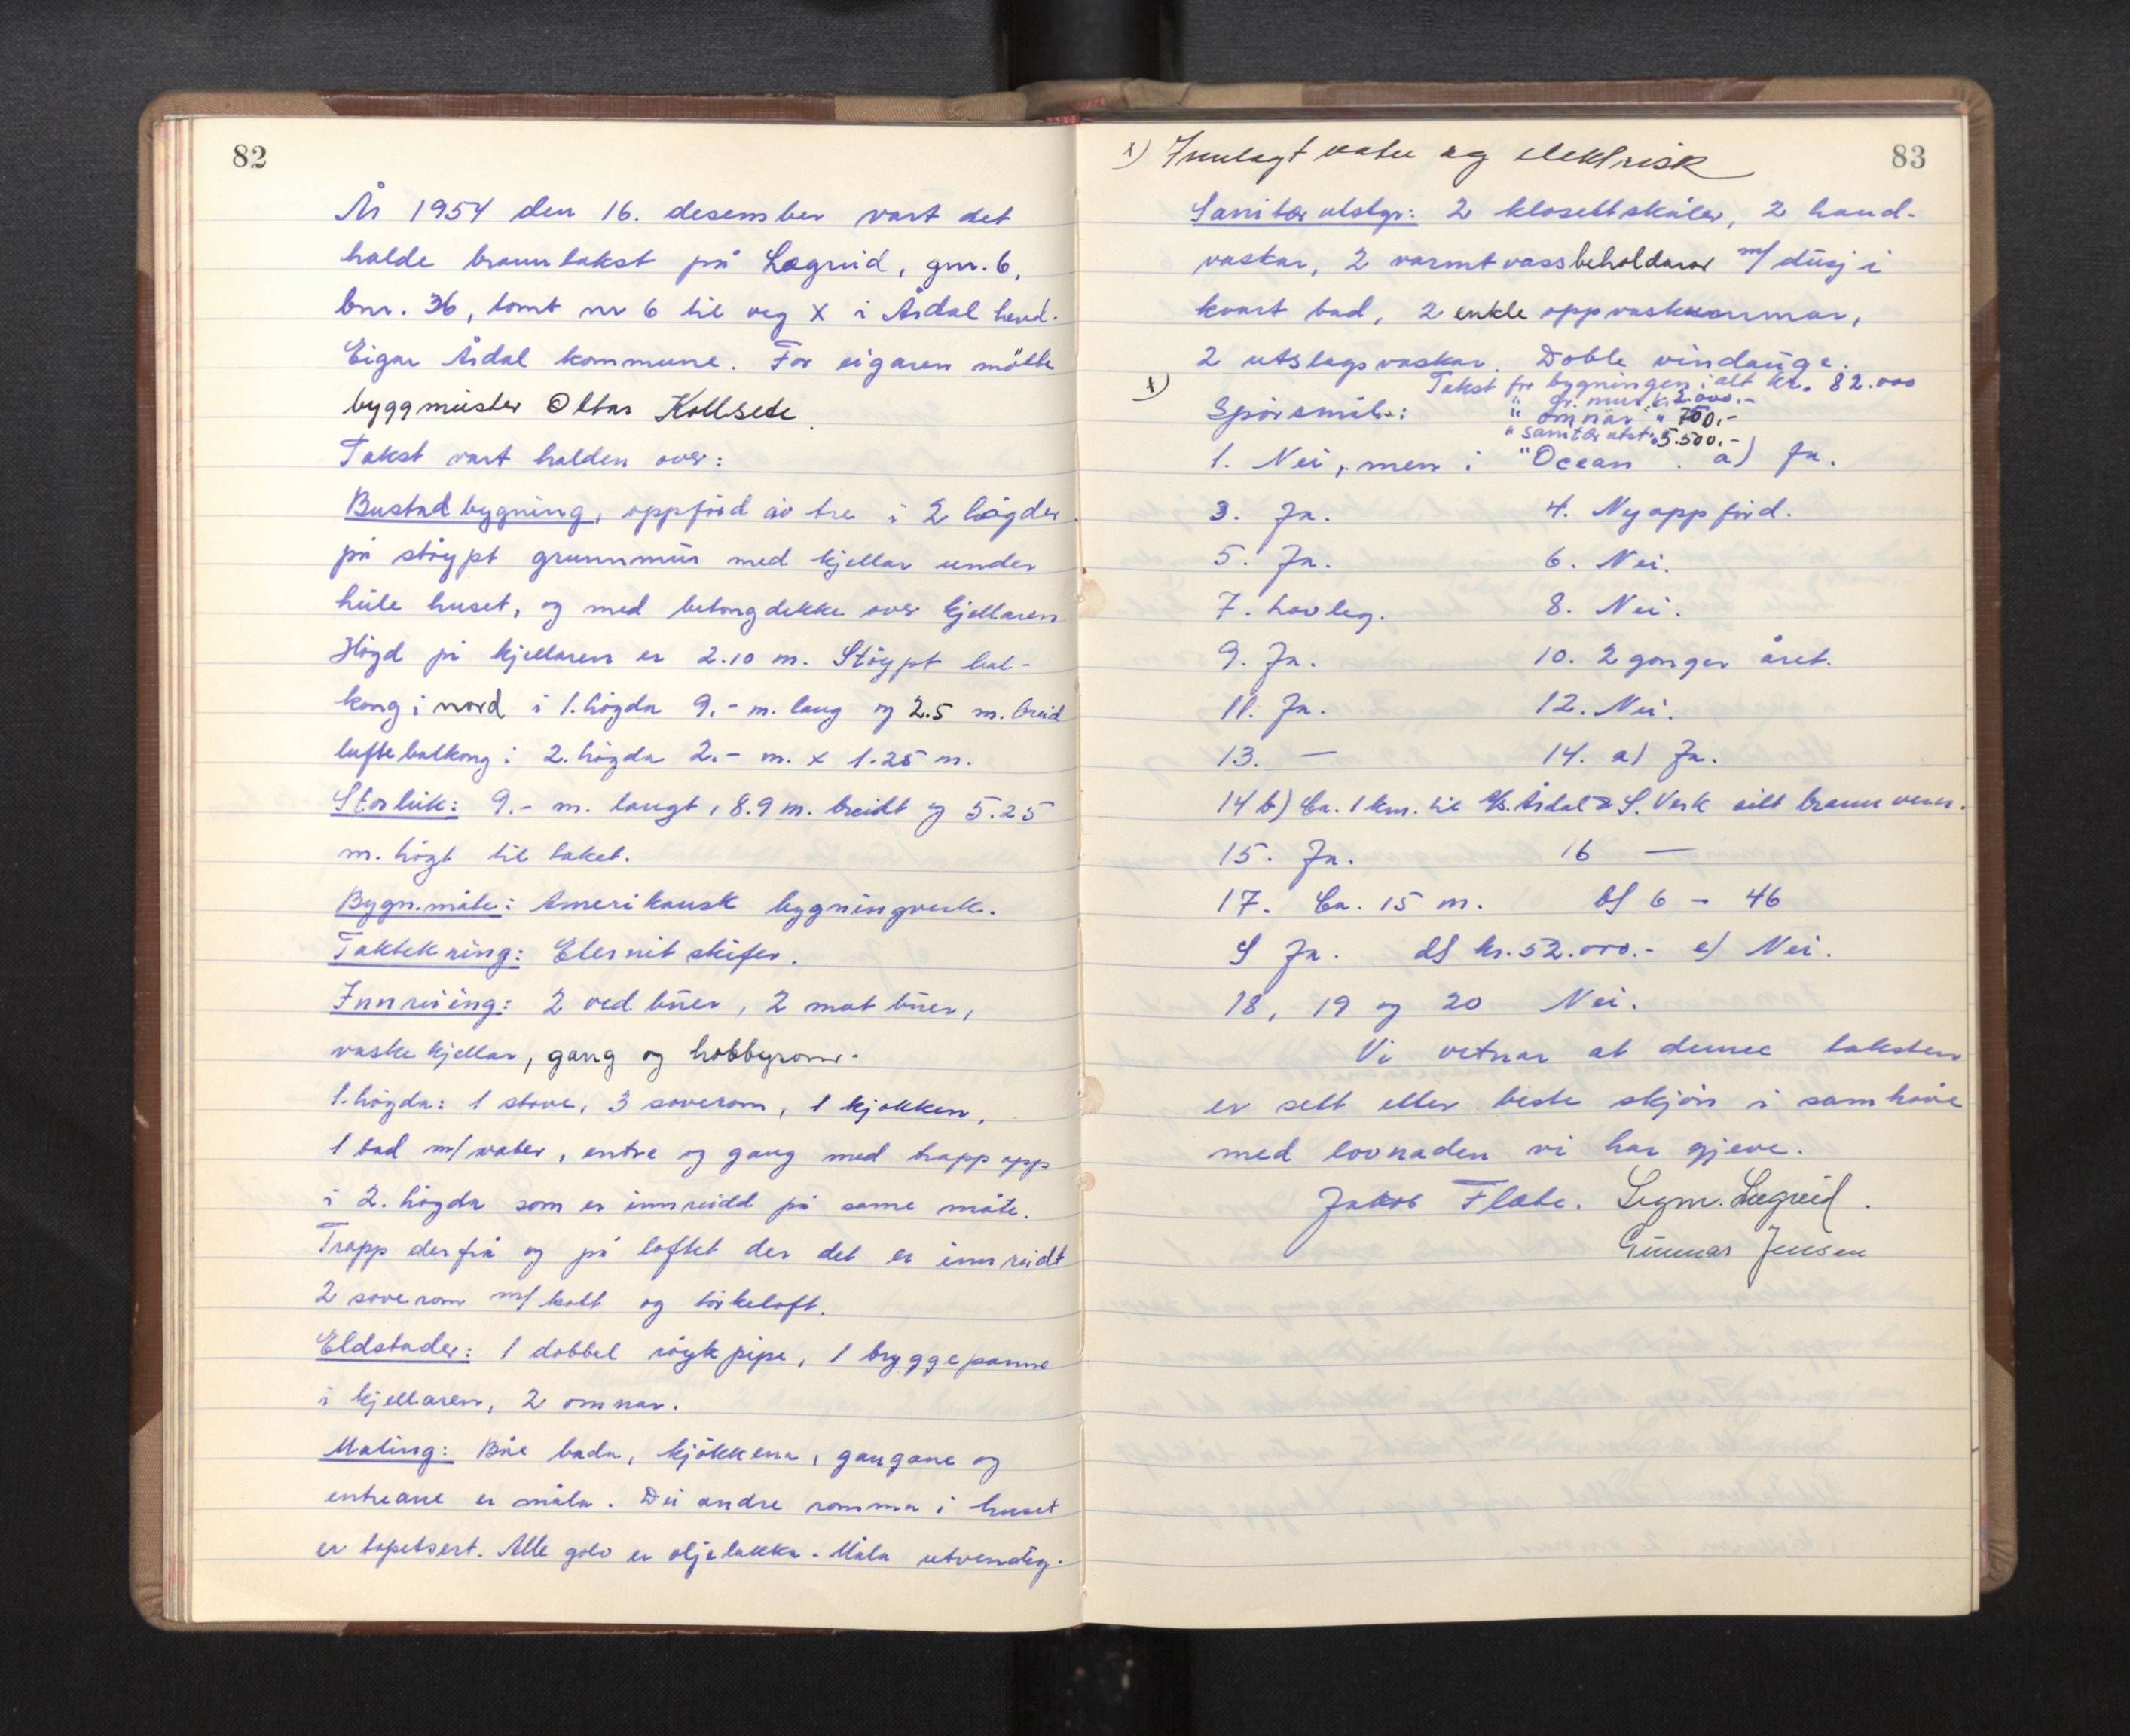 82
År 1954 den 16. desember vart det
halde branntakst på Lægreid, gnr. 6,
bnr. 36, tomt nr 6 til veg X i Årdal herd.
Eigar Årdal kommune. For eigaren møtte
byggmeister Oltar Kollsete.
Takst vart halden over:
Bustadbygning, oppførd av tre i 2 høgder
på støypt grunnmur med kjellar under
heile huset, og med betongdekke over kjellaren
Høgd på kjellaren er 2.10 m. Støypt bal-
kong i nord i 1. høgda 9.- m. lang og 2.5 m. breid
luftebalkong i 2. høgda 2.- m. x 1.25 m.
Storleik: 9.- m. langt, 8.9 m. breidt og 5.25
m. høgt til taket.
Bygn.måte: Amerikansk bygningverk.
Taktekning: Eternitskifer.
Innreiing: 2 vedbuer, 2 matbuer,
vaskekjellar, gang og hobbyrom.
1. høgda: 1 stove, 3 soverom, 1 kjøkken,
1 bad m/water, entre og gang med trapp opp
i 2. høgda som er innreidd på same måte.
Trapp derfrå og på loftet der det er innreidt
2 soverom m/kott og tørkeloft.
Eldstader: 1 dobbel røykpipe, 1 bryggepanne
i kjellaren, 2 omnar.
Maling: Båe bada, kjøkkena, gangane og
entreane er måla. Dei andre romma i huset
er tapetsert. Alle golv er oljelakka. Måla utvendig.
83
x) Innlagt vatn og elektrisk
Sanitærutstyr: 2 klosettskåler, 2 hand-
vaskar, 2 varmtvassbeholdarar m/dusj i
kvart bad, 2 enkle oppvaskkummar,
2 utslagsvaskar. Doble vindauge.
x) Takst for bygningen i alt kr. 82.000
" gr. mur k. 2.000.-
Spørsmål: " omnar " 700,-
" sanitærutst. 5.500.-
1. Nei, men i "Ocean. a) Ja.
3. Ja. 4. Nyoppførd.
5. Ja. 6. Nei.
7. Lovleg. 8. Nei.
9. Ja. 10. 2 gonger året.
11. Ja. 12. Nei.
13. — 14. a) Ja.
14 b) Ca. 1 km. til A/S. Årdal & S. Verk sitt brannvern.
15. Ja. 16 —
17. Ca. 15 m. b) 6 - 46
c) Ja. d) kr. 52.000.- e) Nei.
18, 19 og 20 Nei.
Vi vetnar at denne taksten
er sett etter beste skjøn i samhøve
med lovnaden vi har gjeve.
Jakob Flate. Sigm. Lægreid.
Gunnar Jensen